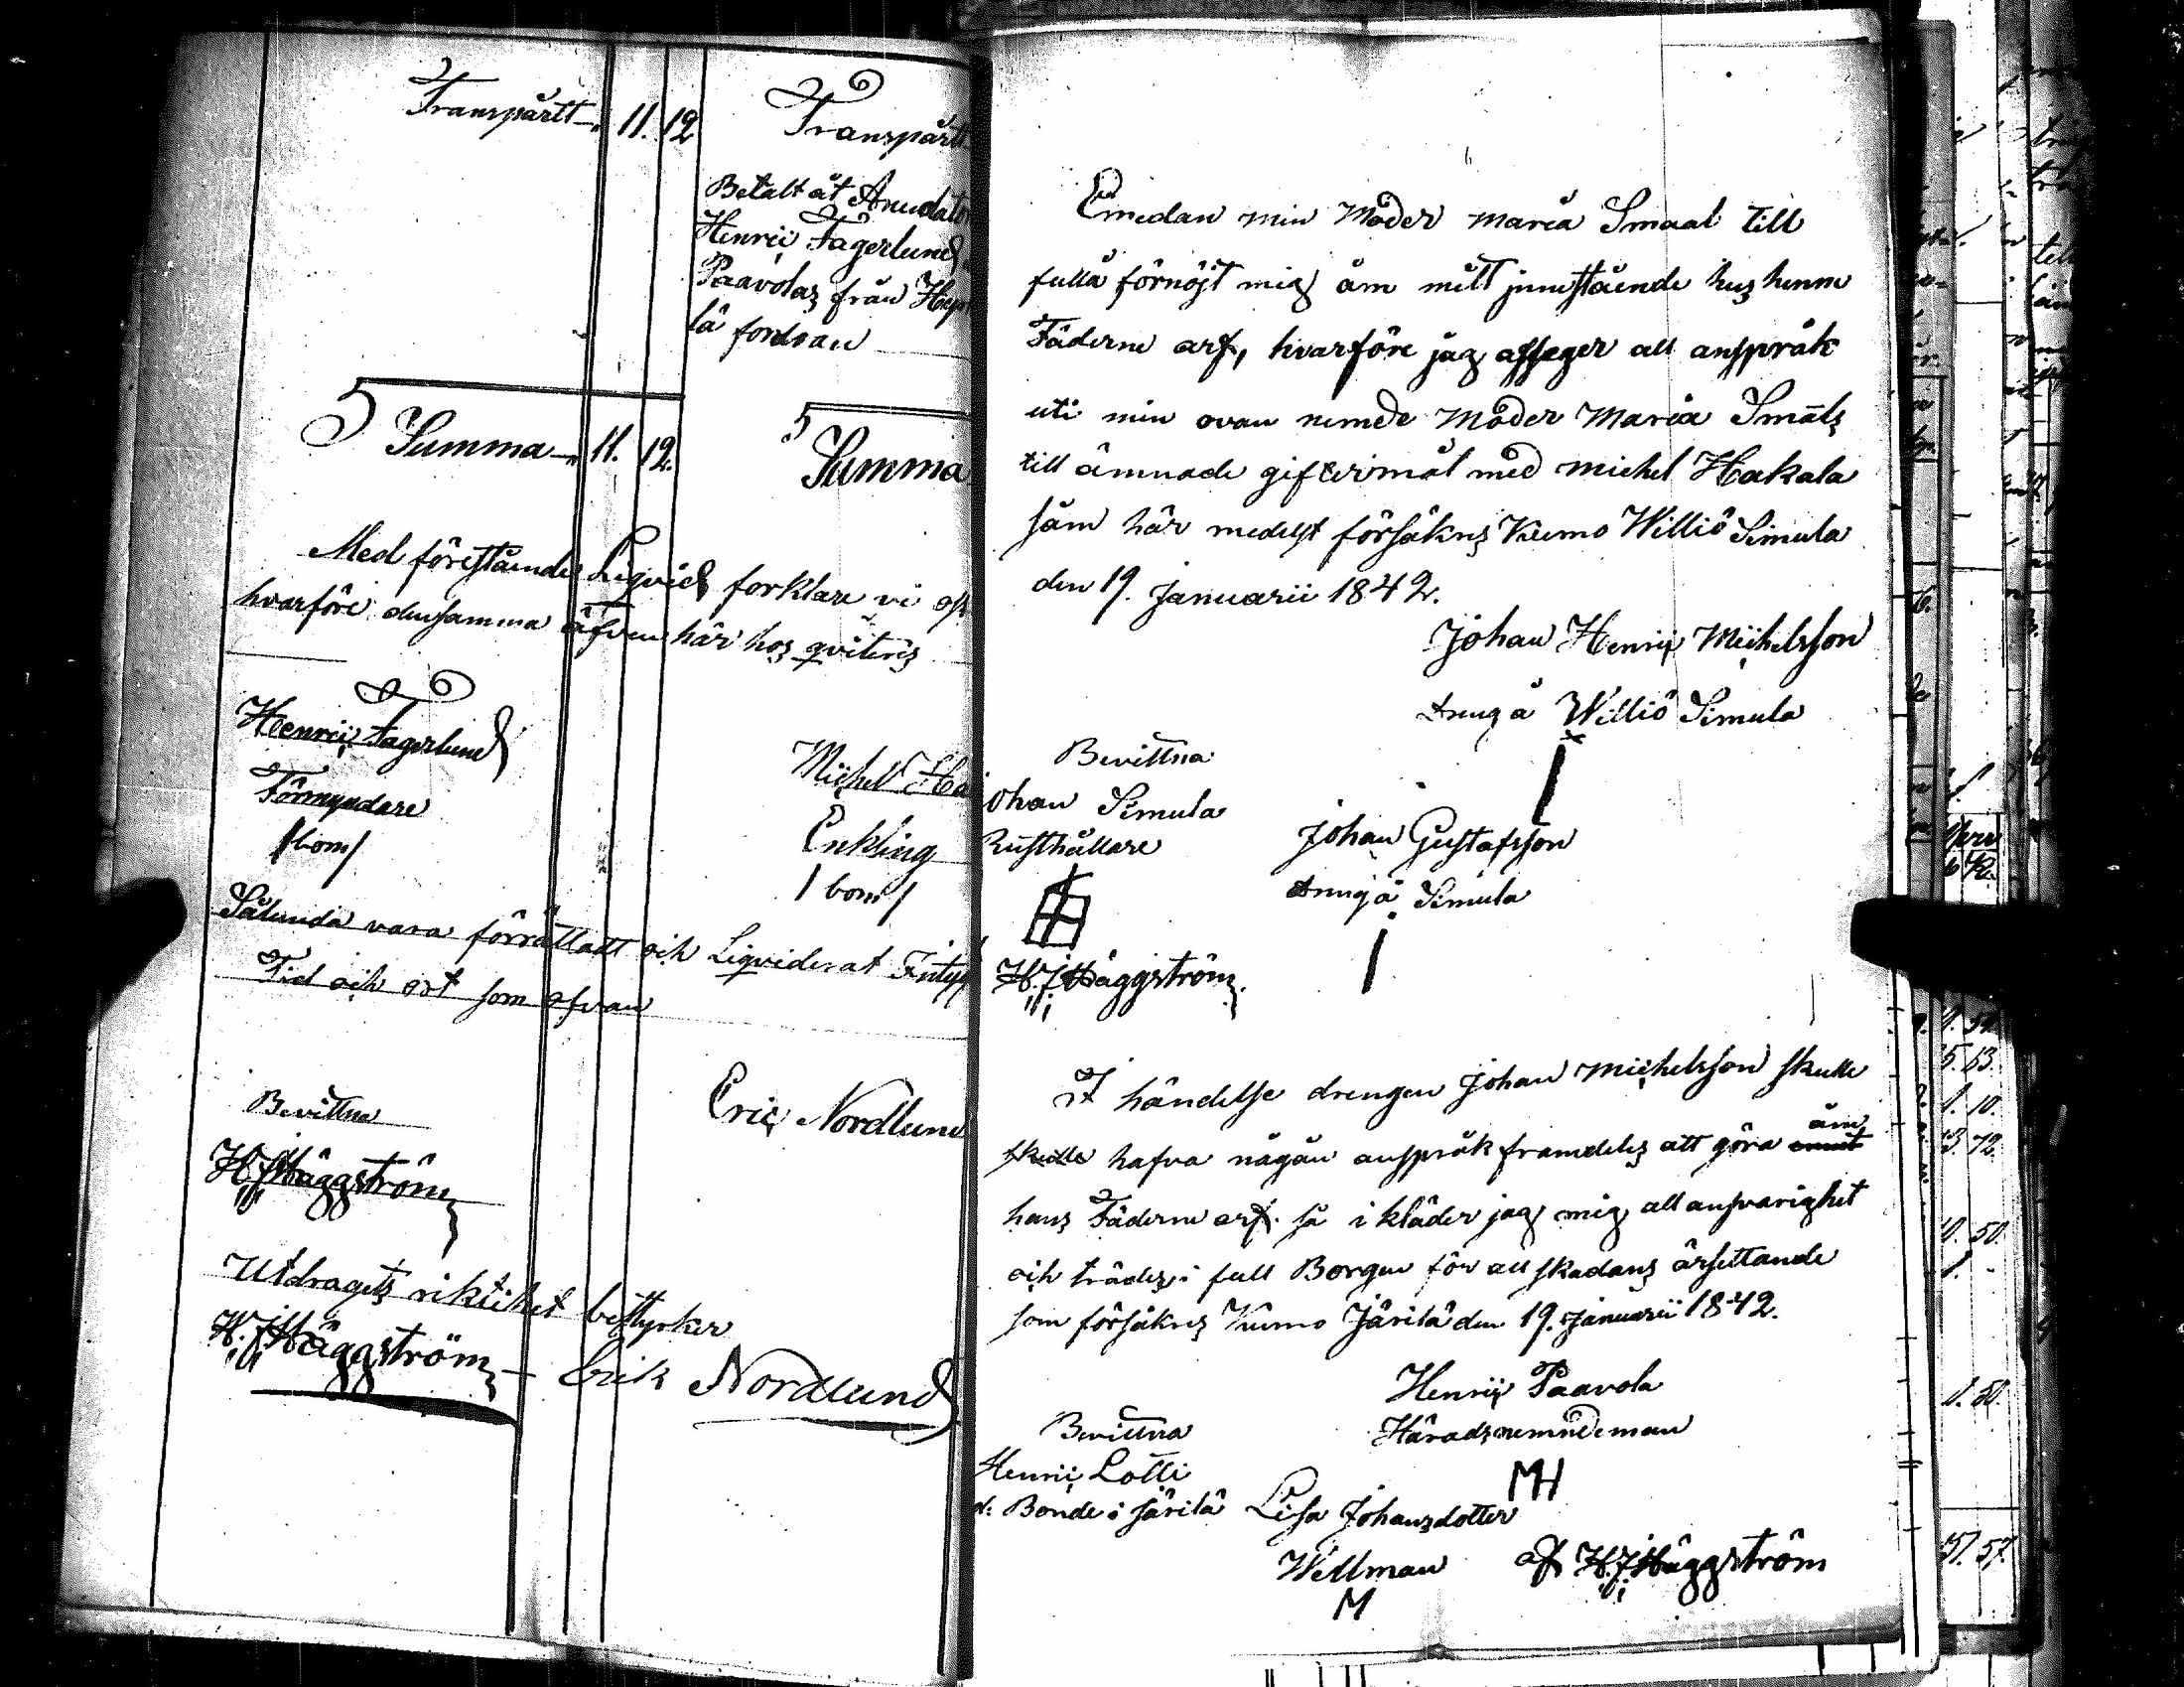 Transpårtt 11. 12
Transpårtt
Betalt åt
Henric Fagerlund
Paavolas från
lä fordran
Summa 11. 12.
Summa
Med förestående Liqvid forklare vi
hvarföre densamma äfven här hos qviteris
Henric Fagerlund
Förmyndare
/bom/
Michel
Enkling
/bom/
Sålunda vara förrättatt och Liqviderat
Tid och ort som ofvan
Bevittna
Eric Nordlund
H. J. Häggström
Utdragets riktihet bestyrker
H. J. Häggström Erik Nordlund
Emedan min Moder Maria Smaal till
fullå förnöjt mig åm mitt innestående hos henne
Fäderne arf, hvarföre jag afseger all anspråk
uti min ovan nemde Moder Maria Smals
till ämnade giftermål med Michel Hakala
såm här medelst försäkras Kumo Williö Simula
den 19. Januarii 1842.
Johan Henric Michelsson
Dreng å Williö Simula
Bevittna
Johan Simula
Rusthållare
Johan Gustafsson
Dreng å Simula
H. J. Häggström
I händelse drengen Johan Michelsson skulle
skulle hafva någån anspråk framdeles att göra åm
hans Fäderne arf. så i kläder jag mig all ansvarighet
och trädes i full Borgen för all skadans årsettande
som försäkras Kumo Järilä den 19. Januarii 1842.
Henric Paavola
Häradsnemndeman
MH
Bevittna
Henric Lotti
Bonde i Järilä
Lisa Johansdotter
Wellman
M
af H. J. Häggström